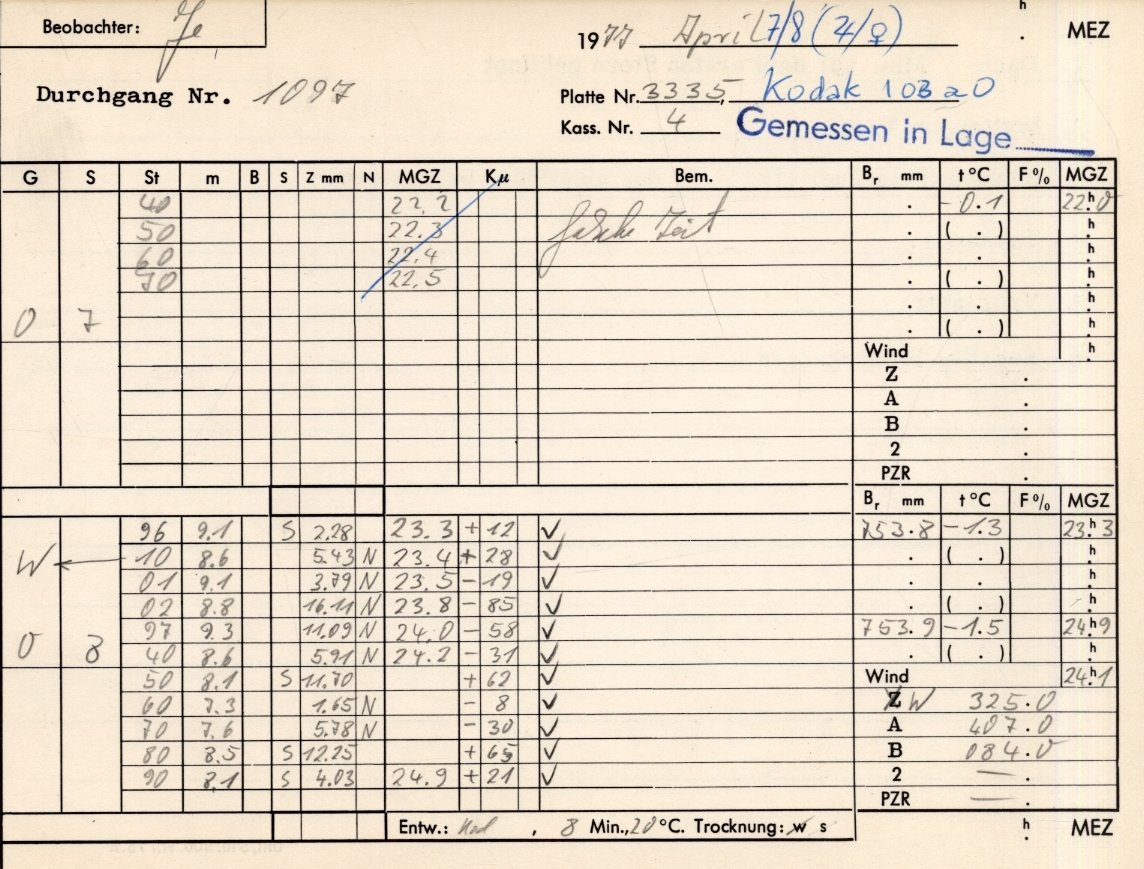 Beobachter: Je h MEZ
1977 April 7/8 (♃/♀) .
Durchgang Nr. 1097
Platte Nr. 3335, Kodak 103 a O
Kass. Nr. 4 Gemessen in Lage
G S St m B S Z mm N MGZ Kµ Bem. Br mm t °C F % MGZ
40 22.2 . -0.1 22.h0
50 22.3 falsche Zeit . ( . ) h.
60 22.4 . . h.
70 22.5 . ( . ) h.
. . h.
0 7 . ( . ) h.
Wind h.
Z .
A .
B .
2 .
PZR .
Br mm t °C F % MGZ
96 9.1 S 2.28 23.3 + 12 ✓ 753.8 -1.3 23.h3
W ← 10 8.6 5.43 N 23.4 + 28 ✓ . ( . ) h.
01 9.1 3.79 N 23.5 - 19 ✓ . . h.
02 8.8 16.11 N 23.8 - 85 ✓ . ( . ) h.
0 8 97 9.3 11.09 N 24.0 - 58 ✓ 753.9 -1.5 24.h9
40 8.6 5.91 N 24.2 - 31 ✓ . ( . ) h.
50 8.1 S 11.70 + 62 ✓ Wind 24.h1
60 7.3 1.65 N - 8 ✓ Z W 325.0
70 7.6 5.78 N - 30 ✓ A 407.0
80 8.5 S 12.25 + 65 ✓ B 084.0
90 8.1 S 4.03 24.9 + 21 ✓ 2 — .
PZR — .
Entw.: , 8 Min., 20 °C. Trocknung: w s h. MEZ